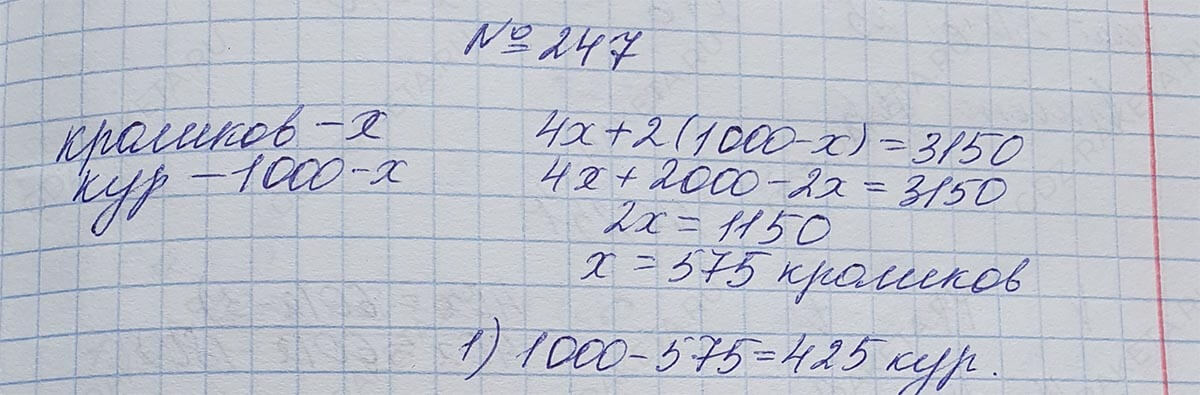 № 247
кроликов - x
4x + 2(1000 - x) = 3150
кур - 1000 - x
4x + 2000 - 2x = 3150
2x = 1150
x = 575 кроликов
1) 1000 - 575 = 425 кур.